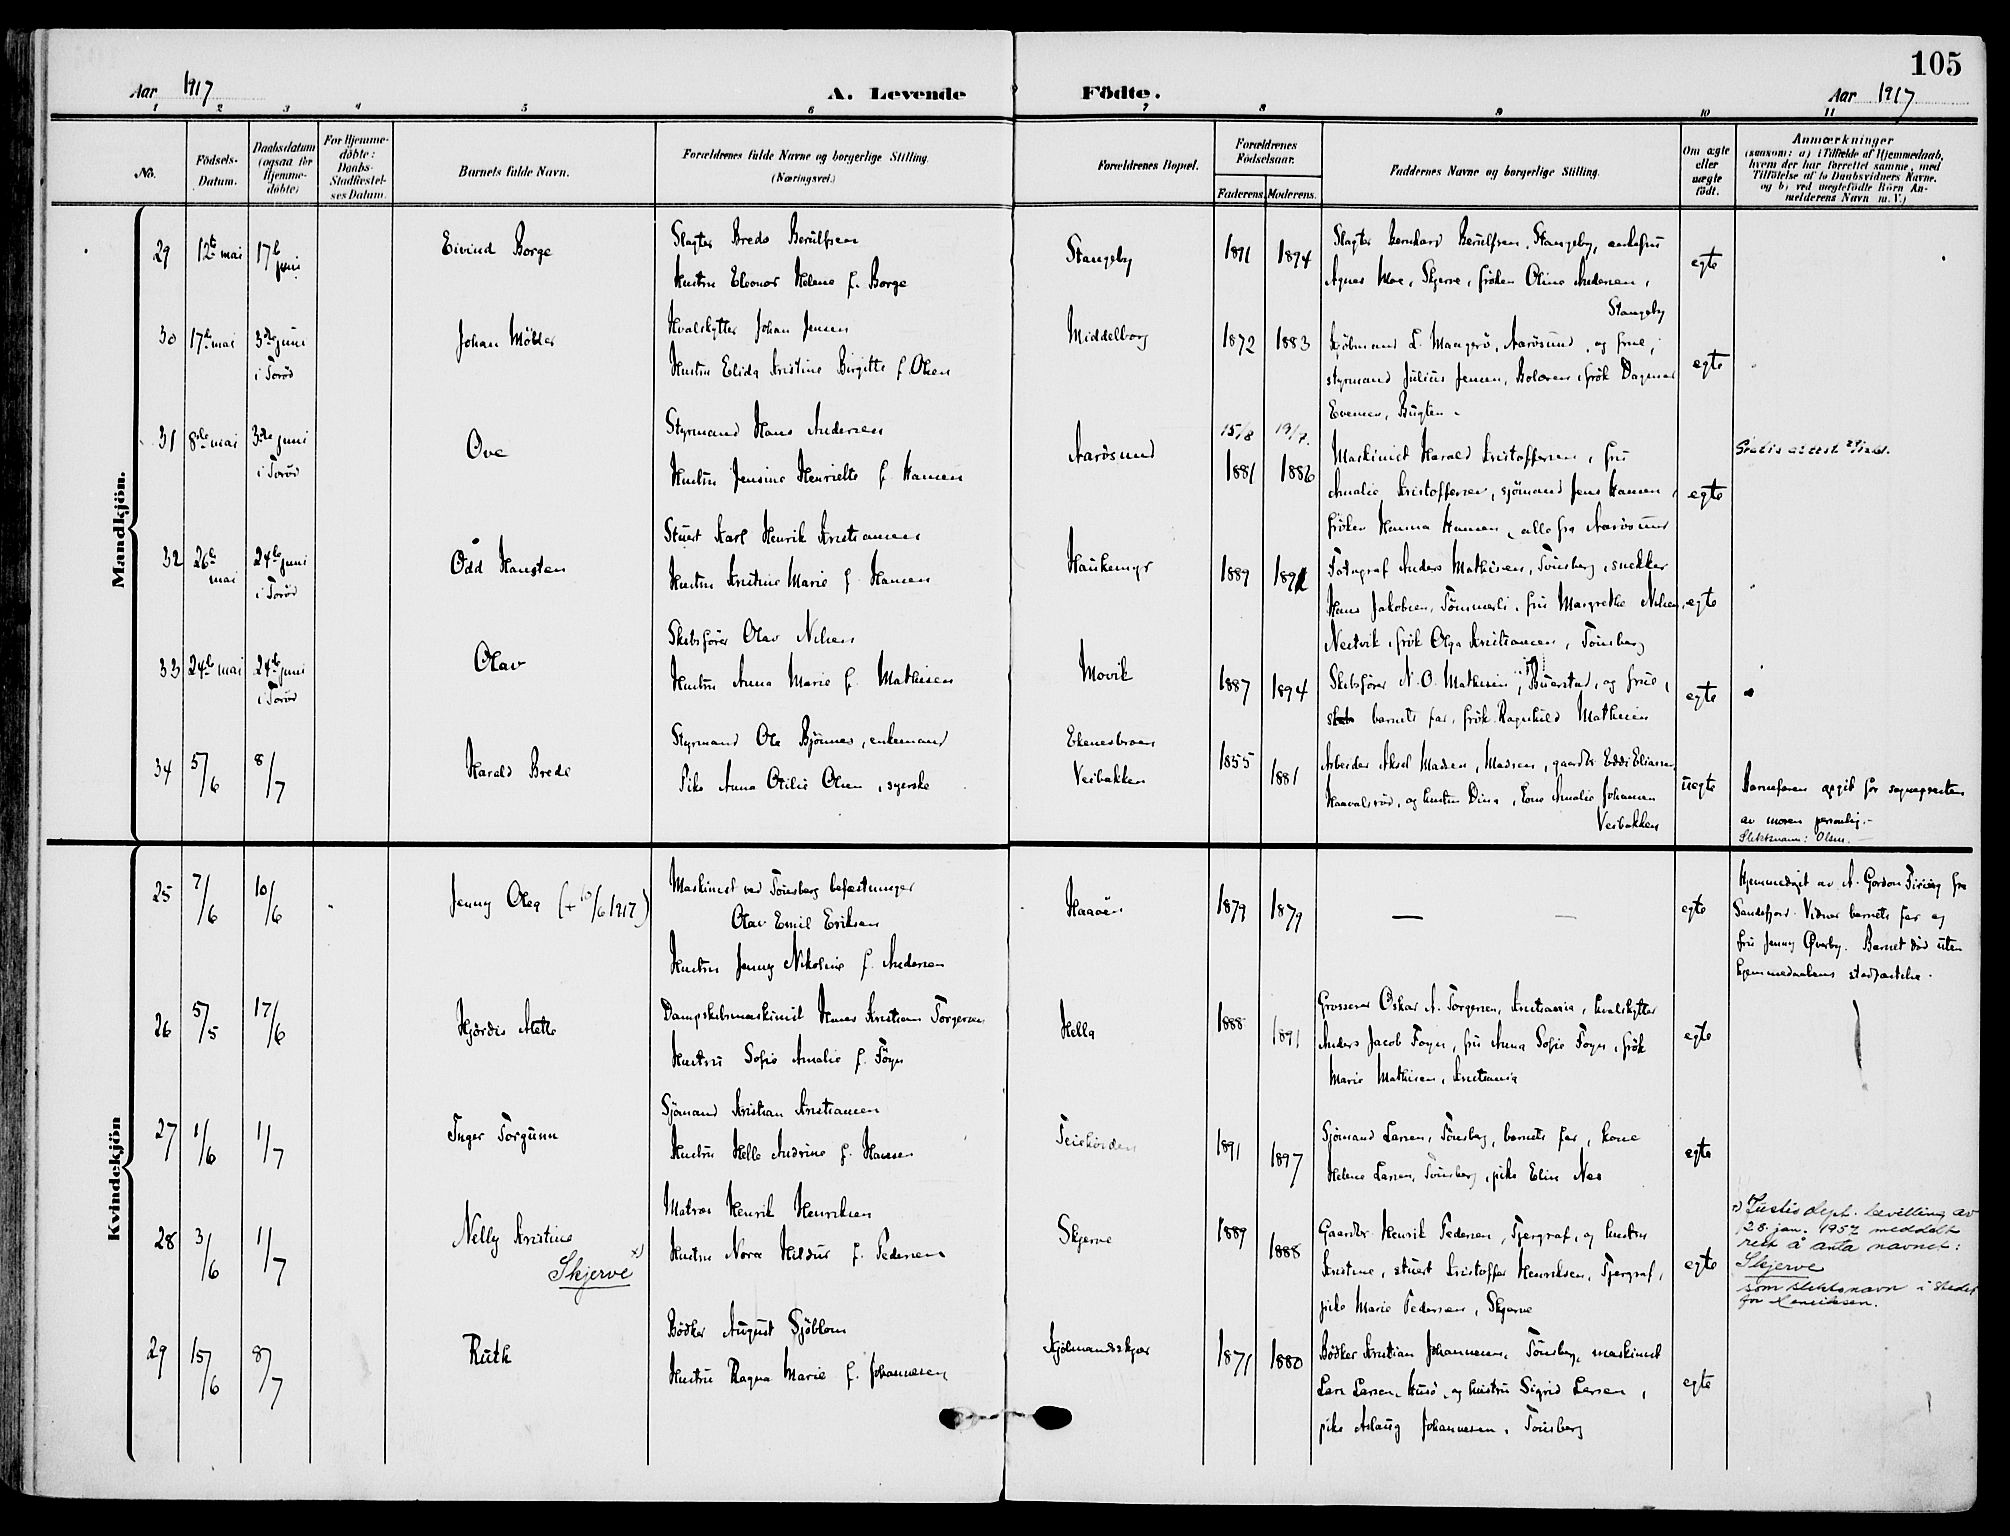 105
Aar 1917 A. Levende Födte. Aar 1917
1 2 3 4 5 6 7 8 9 10 11
No.
Födsels-
Datum.
Daabsdatum
(ogsaa for
Hjemme-
döbte)
For Hjemme-
döbte:
Daabs-
Stadfæstel-
ses Datum.
Barnets fulde Navn.
Forældrenes fulde Navne og borgerlige Stilling.
(Næringsvei.)
Forældrenes Bopæl.
Forældrenes
Födselsaar.
Faderens. Moderens.
Faddernes Navne og borgerlige Stilling.
Om ægte
eller
uægte
födt.
Anmærkninger
(saasom: a) i Tilfælde af Hjemmedaab,
hvem der har forrettet samme, med
Tilföielse af to Daabsvidners Navne,
og b) ved uægtefödte Börn An-
melderens Navn m. V.)
Mandkjön.
29 12te mai 17de juni
Eivind Borge
Slagter Brede Berulfsen
Hustru Eleonor Helene f. Borge
Stangeby
1891 1894
Slagter Bernhard Berulfsen, Stangeby, enkefru
Agnes Moe, Skjerve, fröken Oline Andersen,
Stangeby
egte
30 17de mai 3die juni
i Torød
Johan Möller
Hvalskytter Johan Jensen
Hustru Elida Kristine Birgitte f. Olsen
Middelborg
1872 1883
Kjöbmand L. Mangerö, Aarösund, og frue,
styrmand Julius Jensen, Bolæren, frök Dagmar
Evensen, Bugten.
egte
31 8de mai 3die juni
i Torød
Ove
Styrmand Hans Andersen
Hustru Jensine Henriette f. Hansen
Aarösund
15/8 19/7.
1881 1886
Maskinist Harald Kristoffersen, fru
Amalie Kristoffersen, sjömand Jens Hansen,
fröken Hanna Hansen, alle fra Aarösund
egte
Gratis attest
32 26de
mai
24de juni
i Torød
Odd Hansten
Stuert Karl Henrik Kristiansen
Hustru Kristine Marie f. Hansen
Haukemyr
1889 1892
Fotograf Anders Mathisen, Tönsberg, snekker
Hans Jakobsen, Tömmerli, fru Margrethe Nilsen,
Nestvik, frök Olga Kristiansen, Tönsberg
egte
33 24de mai 24de juni
i Torød
Olav
Skibsförer Olav Nilsen
Hustru Anna Marie f. Mathisen
Movik
1887 1894
Skibsförer N. O. Mathisen, Buerstad, og frue,
barnets far, frök. Ragnhild Mathisen
egte
34 5/6 8/7
Harald Brede
Styrmand Ole Bjönnes, enkemand
Pike Anna Otilie Olsen, syerske
Ekenesbroen
Veibakken
1855
1881
Arbeider Aksel Madsen, Madsen, gaardbr. Eddi Eliassen,
Haavalsröd, og hustru Dina, Enne Amalie Johansen
Veibakken
uegte
Barnefaren opgit for sognepresten
av moren personlig.-
Slektsnavn: Olsen.-
Kvindekjön
25 7/6 10/6
Jenny Olea († 10/6 1917)
Maskinist ved Tönsberg befæstninger
Olav Emil Eriksen
Hustru Jenny Nikoline f. Andersen
Haaöen
1879 1879
— —
egte
Hjemmedöpt av A. Gordon fra
Sandefjord. Vidner barnets far og
fru Jenny Överby. Barnet död uten
hjemmedaabens stadfæstelse.
26 5/5 17/6
Hjördis Mette
Dampskibsmaskinist Hans Kristian Torgersen
Hustru Sofie Amalie f. Föyn
Hella
1888
1891
Grosserer Oskar A. Torgersen, Kristiania, hvalskytter
Anders Jacob Foyn, fru Anna Sofie Foyn, frök
Marie Mathisen, Kristiania
egte
27 1/6 1/7
Inger Torgunn
Sjömand Kristian Kristiansen
Hustru Helle Andrine f. Hansen
1891
1897
Sjömand Larsen, Tönsberg, barnets far, kone
Helene Larsen, Tönsberg, pike Elin Nes
egte
28 3/6 1/7
Nelly Kristine
Skjerve x)
Matros Henrik Henriksen
Hustru Nora Hildur f. Pedersen
Skjerve
1889
1888
Gaardbr. Henrik Pedersen, Tjergraf, og hustru
Kristine, stuert Kristoffer Henriksen, Tjergraf,
pike Marie Pedersen, Skjerve
egte
x) Justisdept. bevilling av
28. jan. 1957 meddelt
rett å anta navnet:
Skjerve
som slektsnavn i stedet
for Henriksen.
29 15/6 8/7
Ruth
Bödker August Sjöblom
Hustru Ragna Marie f. Johannesen
Kjölmandsskjær
1871 1880
Bödker Kristian Johannesen, Tönsberg, maskinist
Lars Larsen, Husö, og hustru Sigrid Larsen,
pike Aslaug Johannesen, Tönsberg
egte